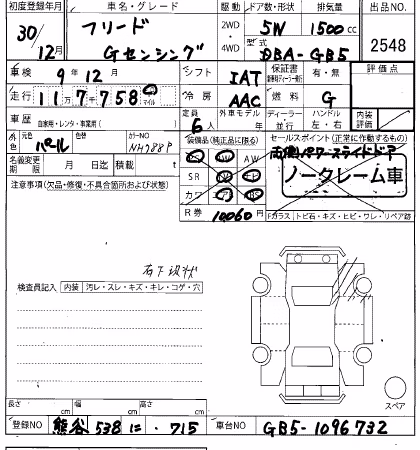 初度登録年月 車名・グレード 駆動 ドア数・形状 排気量 出品NO
30/12月 フリード Gセンシング 2WD・4WD 5W 1500cc 2548
型式 DBA-GB5
車検 9年12月 シフト IAT 保証書 有・無 評価点
走行 117758 マイル 冷房 AAC 燃料 G
車歴 自家用・レンタ・事業用( ) 定員 6人 外車モデル 年 ディーラー・並行 ハンドル 左・右 内装評価
外色 元色 パール 色替 カラーNO NH788P 装備品(純正品に限る) セールスポイント(正常に作動するもの)
名義変更期限 月 日迄 積載 t AW 両側パワースライドドア
注意事項(欠品・修復・不具合箇所および状態) SR ノークレーム車
カワ
R券 10060円 Fガラス トビ石・キズ・ヒビ・ワレ・リペア跡
検査員記入 内装 汚レ・スレ・キズ・キレ・コゲ・穴
スペア
長さ cm 幅 cm 高さ cm
登録NO 熊谷 538 に ・715 車台NO GB5-1096732